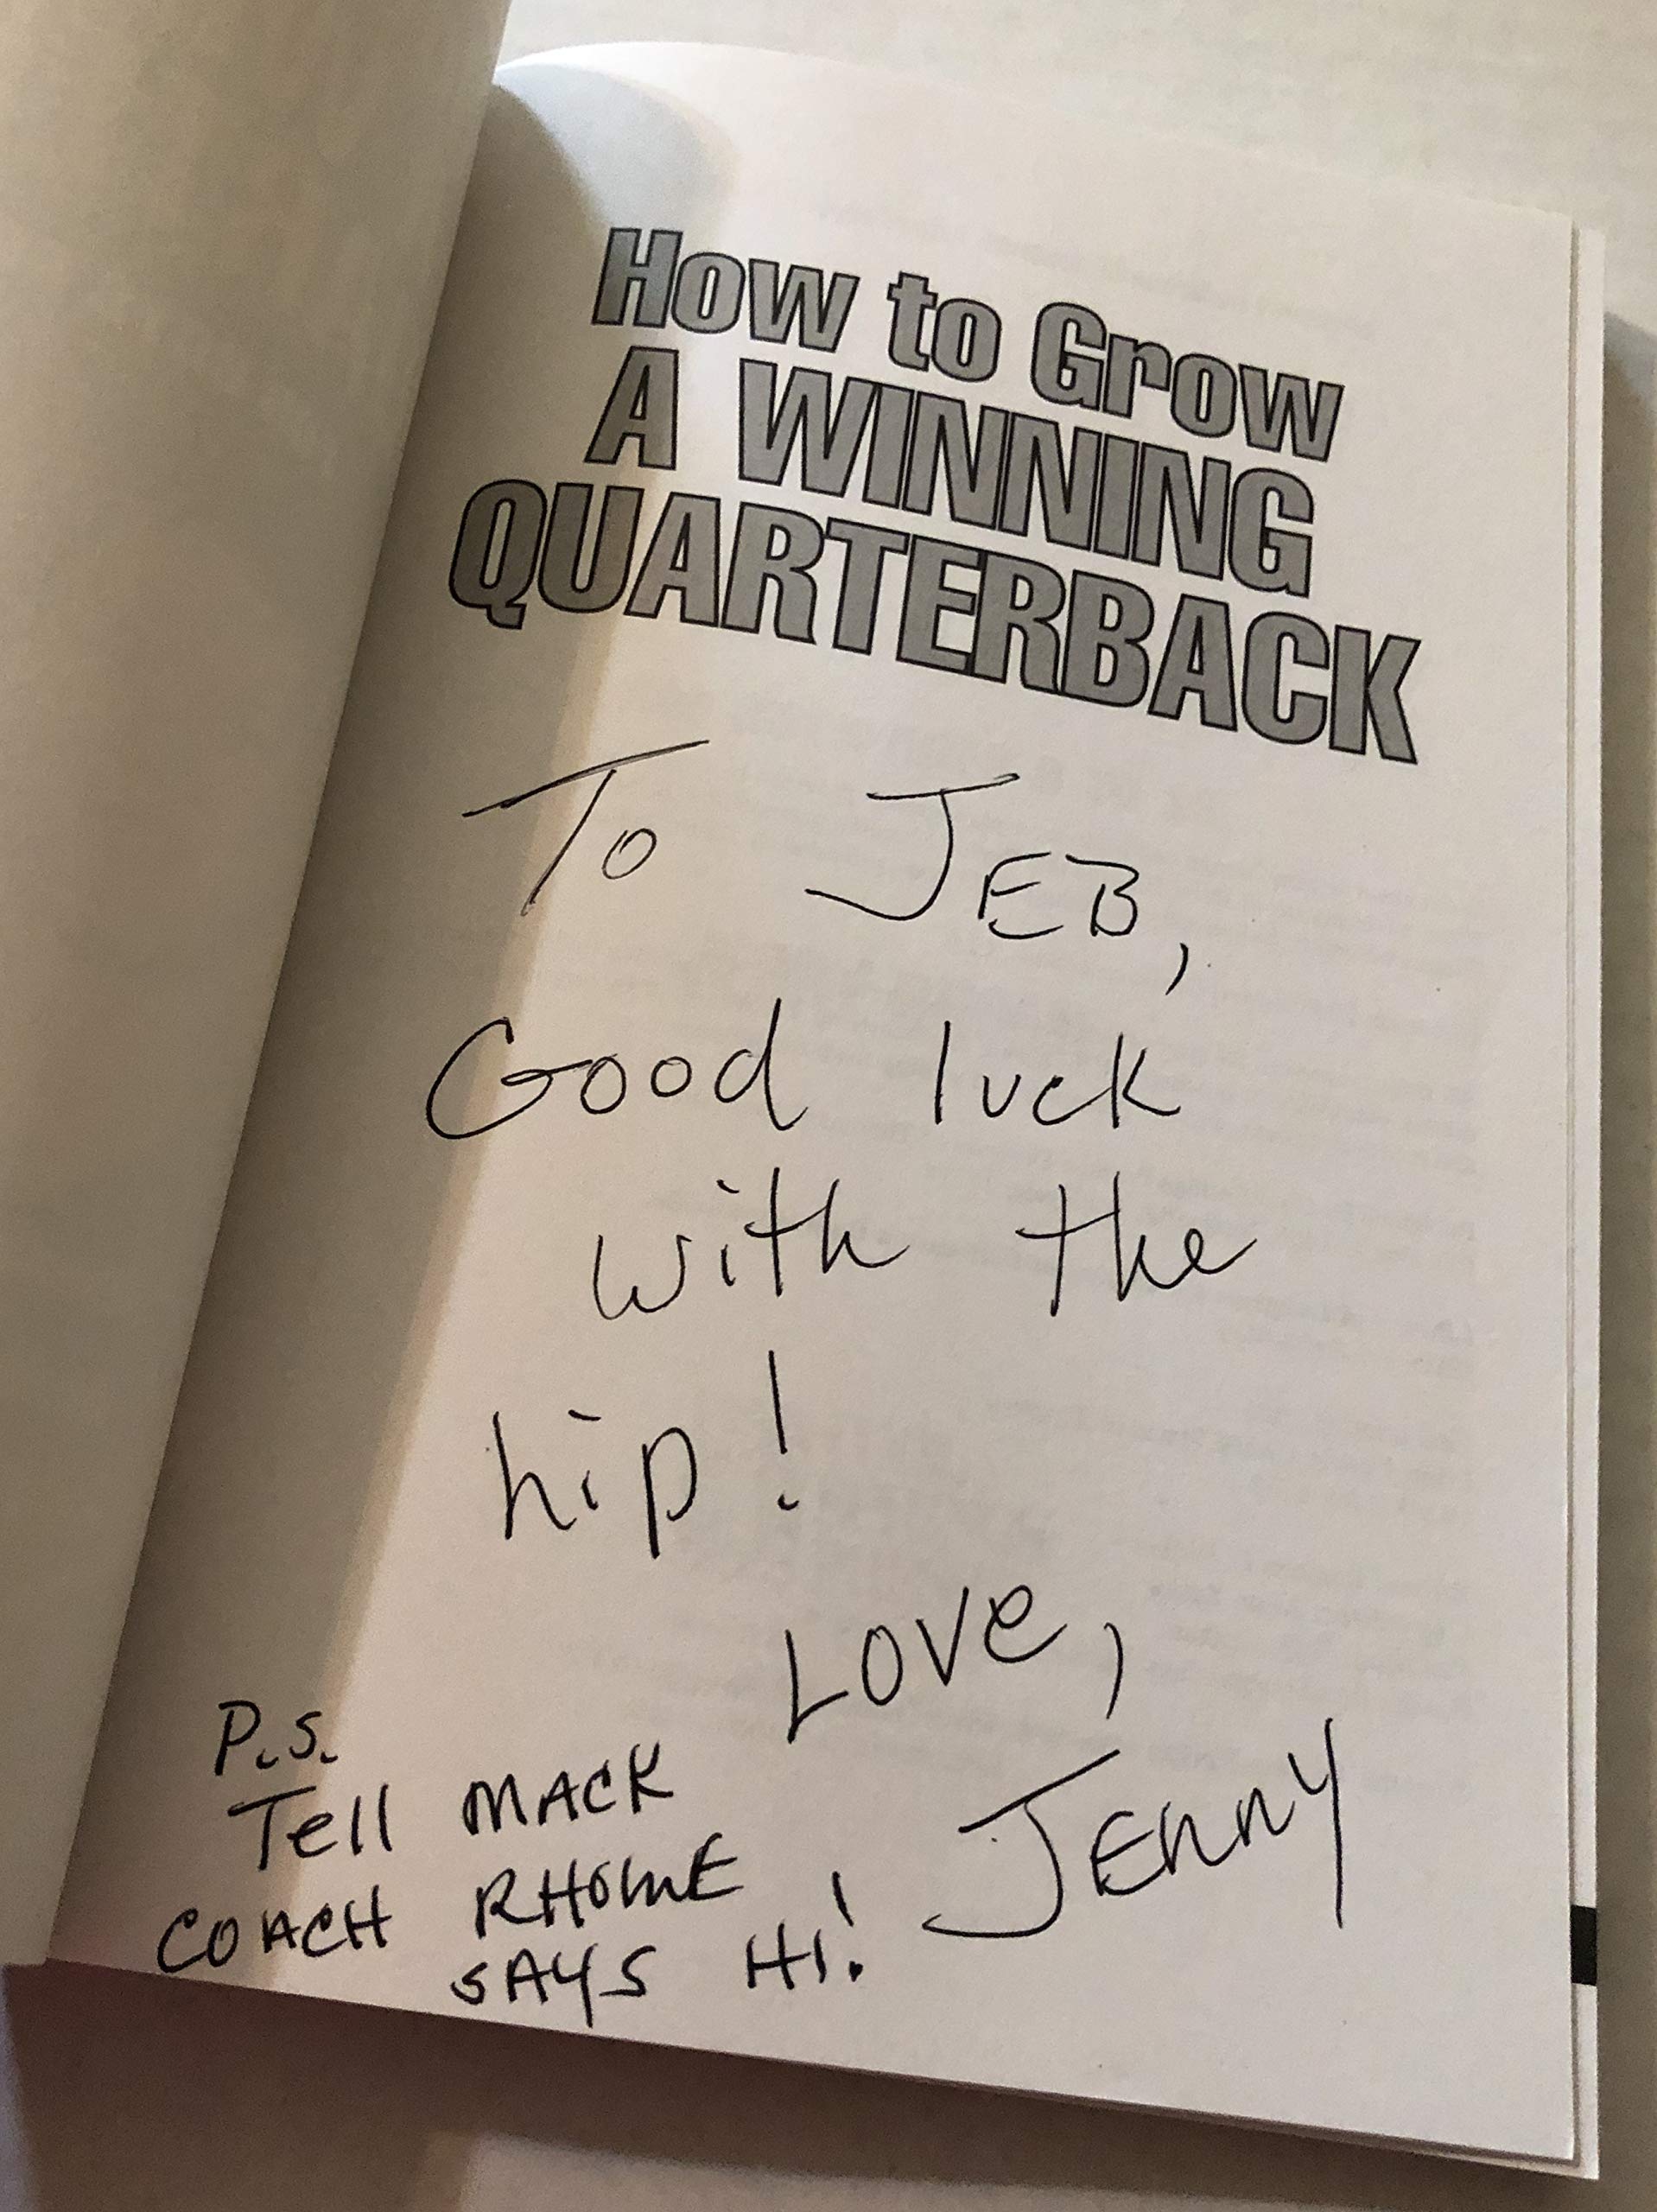 How to Grow
A WINNING
QUARTERBACK
To JEB,
Good luck
with the
hip!
Love,
JENNY
P.S.
Tell MACK
COACH RHOME
SAYS HI!